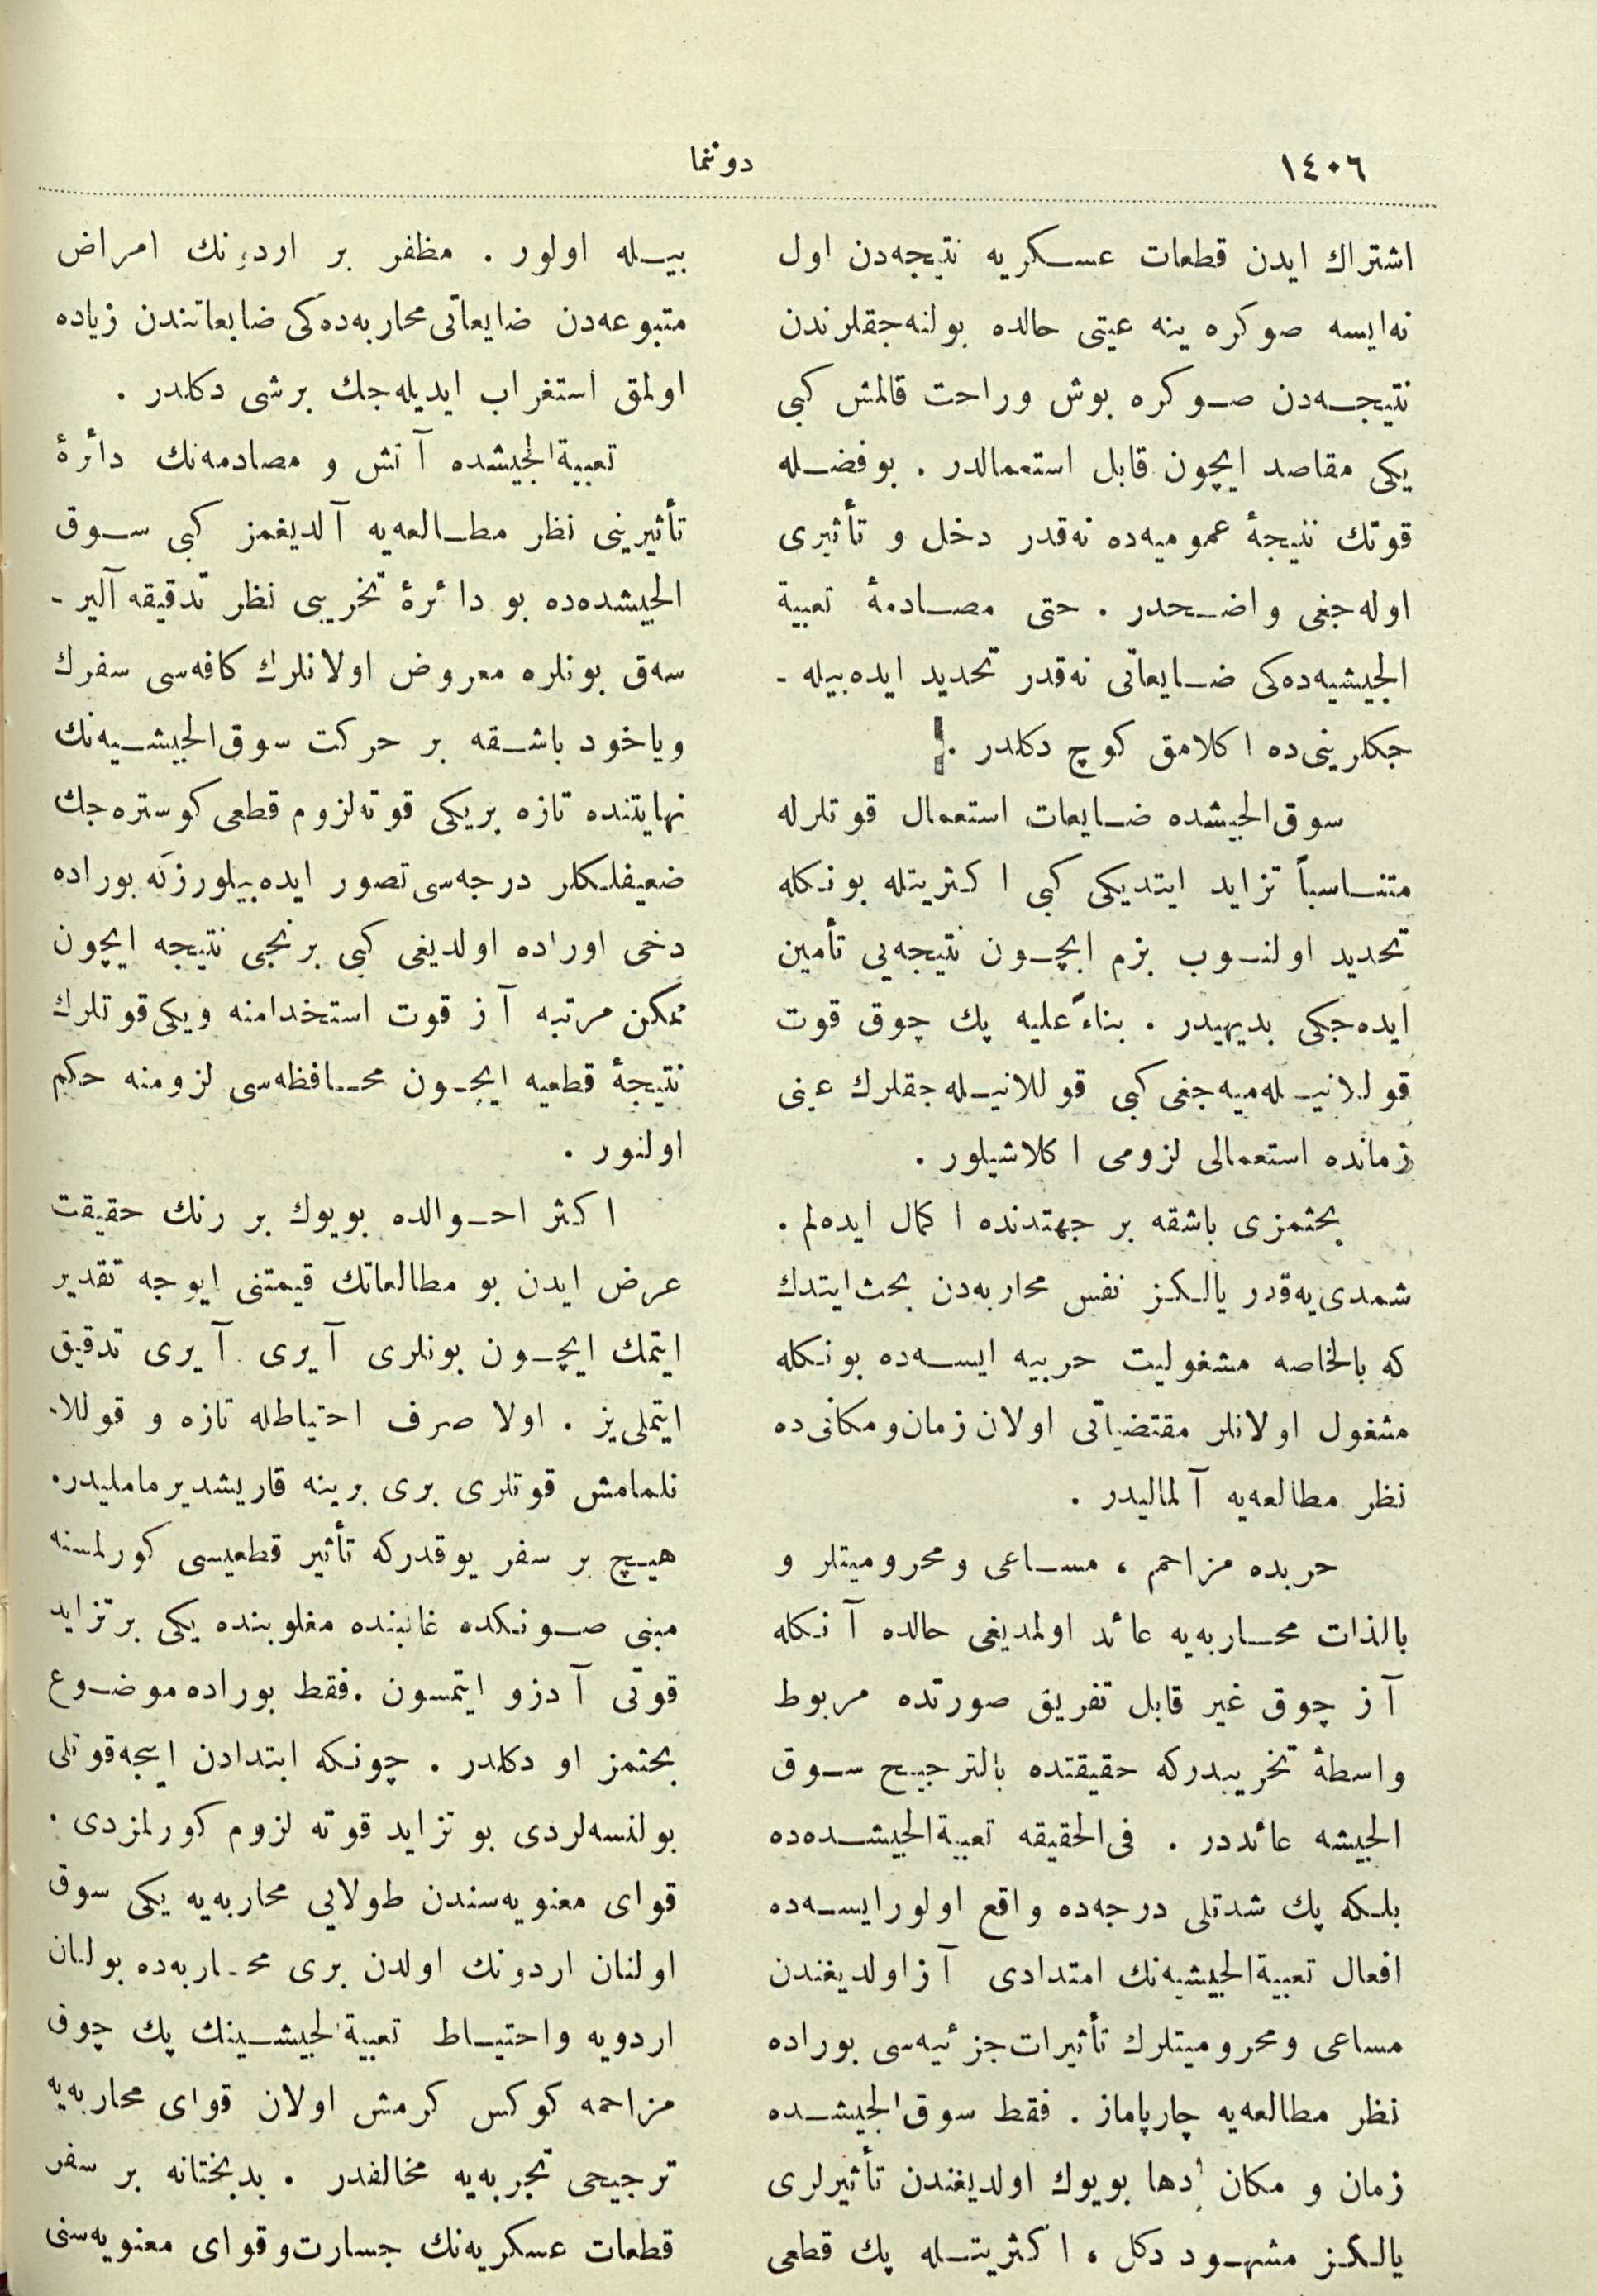 ١٤٠٦
دوننما
اشتراك ايدن قطعات عسكريه نتيجه‌دن اول
نه‌ايسه صوكره ينه عينى حالده بولنه‌جقلرندن
نتيجه‌دن صوكره بوش وراحت قالمش كبى
يكى مقاصد ايچون قابل استعمالدر . بوفضله
قوتك نتيجهٔ عموميه‌ده نه‌قدر دخل و تأثيرى
اوله‌جغى واضحدر . حتى مصادمهٔ تعبية
الجيشيه‌ده‌كى ضايعاتى نه‌قدر تحديد ايده‌بيله -
جكلرينى‌ده اكلامق كوچ دكلدر .
سوق‌الجيشده ضايعات استعمال قوتلرله
متناسباً تزايد ايتديكى كبى اكثريتله بونكله
تحديد اولنوب بزم ايچون نتيجه‌يى تأمين
ايده‌جكى بديهيدر . بناءً عليه پك چوق قوت
قوللانيله‌ميه‌جغى كبى قوللانيله‌جقلرك عينى
زمانده استعمالى لزومى اكلاشيلور .
بحثمزى باشقه بر جهتدنده اكمال ايده‌لم .
شمدى‌يه‌قدر يالكز نفس محاربه‌دن بحث ايتدك
كه بالخاصه مشغوليت حربيه ايسه‌ده بونكله
مشغول اولانلر مقتضياتى اولان زمان‌ومكانى‌ده
نظر مطالعه‌يه آلماليدر .
حربده مزاحم ، مساعى ومحروميتلر و
بالذات محاربه‌يه عائد اولمديغى حالده آنكله
آز چوق غير قابل تفريق صورتده مربوط
واسطهٔ تخريبدركه حقيقتده بالترجيح سوق
الجيشه عائددر . فى‌الحقيقه تعبية‌الجيشده‌ده
بلكه پك شدتلى درجه‌ده واقع اولورايسه‌ده
افعال تعبية‌الجيشيه‌نك امتدادى آزاولديغندن
مساعى ومحروميتلرك تأثيرات‌جزئيه‌سى بوراده
نظر مطالعه‌يه چارپاماز . فقط سوق‌الجيشده
زمان و مكان دها بويوك اولديغندن تأثيرلرى
يالكز مشهود دكل ، اكثريتله پك قطعى
بيله اولور . مظفر بر اردونك امراض
متبوعه‌دن ضايعاتى‌محاربه‌ده‌كى ضايعاتندن زياده
اولمق استغراب ايديله‌جك برشى دكلدر .
تعبية‌الجيشده آتش و مصادمه‌نك دائرهٔ
تأثيرينى نظر مطالعه‌يه آلديغمز كبى سوق
الجيشده‌ده بو دائرهٔ تخريبى نظر تدقيقه آلير -
سه‌ق بونلره معروض اولانلرك كافه‌سى سفرك
وياخود باشقه بر حركت سوق‌الجيشيه‌نك
نهايتنده تازه بريكى قوته‌لزوم قطعى كوستره‌جك
ضعيفلكلر درجه‌سى تصور ايده‌بيلورزكه بوراده
دخى اوراده اولديغى كبى برنجى نتيجه ايچون
ممكن مرتبه آز قوت استخدامنه ويكى‌قوتلرك
نتيجهٔ قطعيه ايچون محافظه‌سى لزومنه حكم
اولنور .
اكثر احوالده بويوك بر رنك حقيقت
عرض ايدن بو مطالعاتك قيمتنى ايوجه تقدير
ايتمك ايچون بونلرى آيرى آيرى تدقيق
ايتملى‌يز . اولا صرف احتياطله تازه و قوللا-
نلمامش قوتلرى برى برينه قاريشديرمامليدر.
هيچ بر سفر يوقدركه تأثير قطعيسى كورلمسنه
مبنى صونكده غالبنده مغلوبنده يكى برتزايد
قوتى آدزو ايتمسون .فقط بوراده‌موضوع
بحثمز او دكلدر . چونكه ابتدادن ايجه‌قوتلى
بولنسه‌لردى بو تزايد قوته لزوم كورلمزدى .
قواى معنويه‌سندن طولايى محاربه‌يه يكى سوق
اولنان اردونك اولدن برى محاربه‌ده بولنان
اردويه واحتياط تعبية‌الجيشينك پك چوق
مزاحمه كوكس كرمش اولان قواى محاربه‌يه
ترجيحى تجربه‌يه مخالفدر . بدبختانه بر سفر
قطعات عسكريه‌نك جسارت‌وقواى معنويه‌سنى